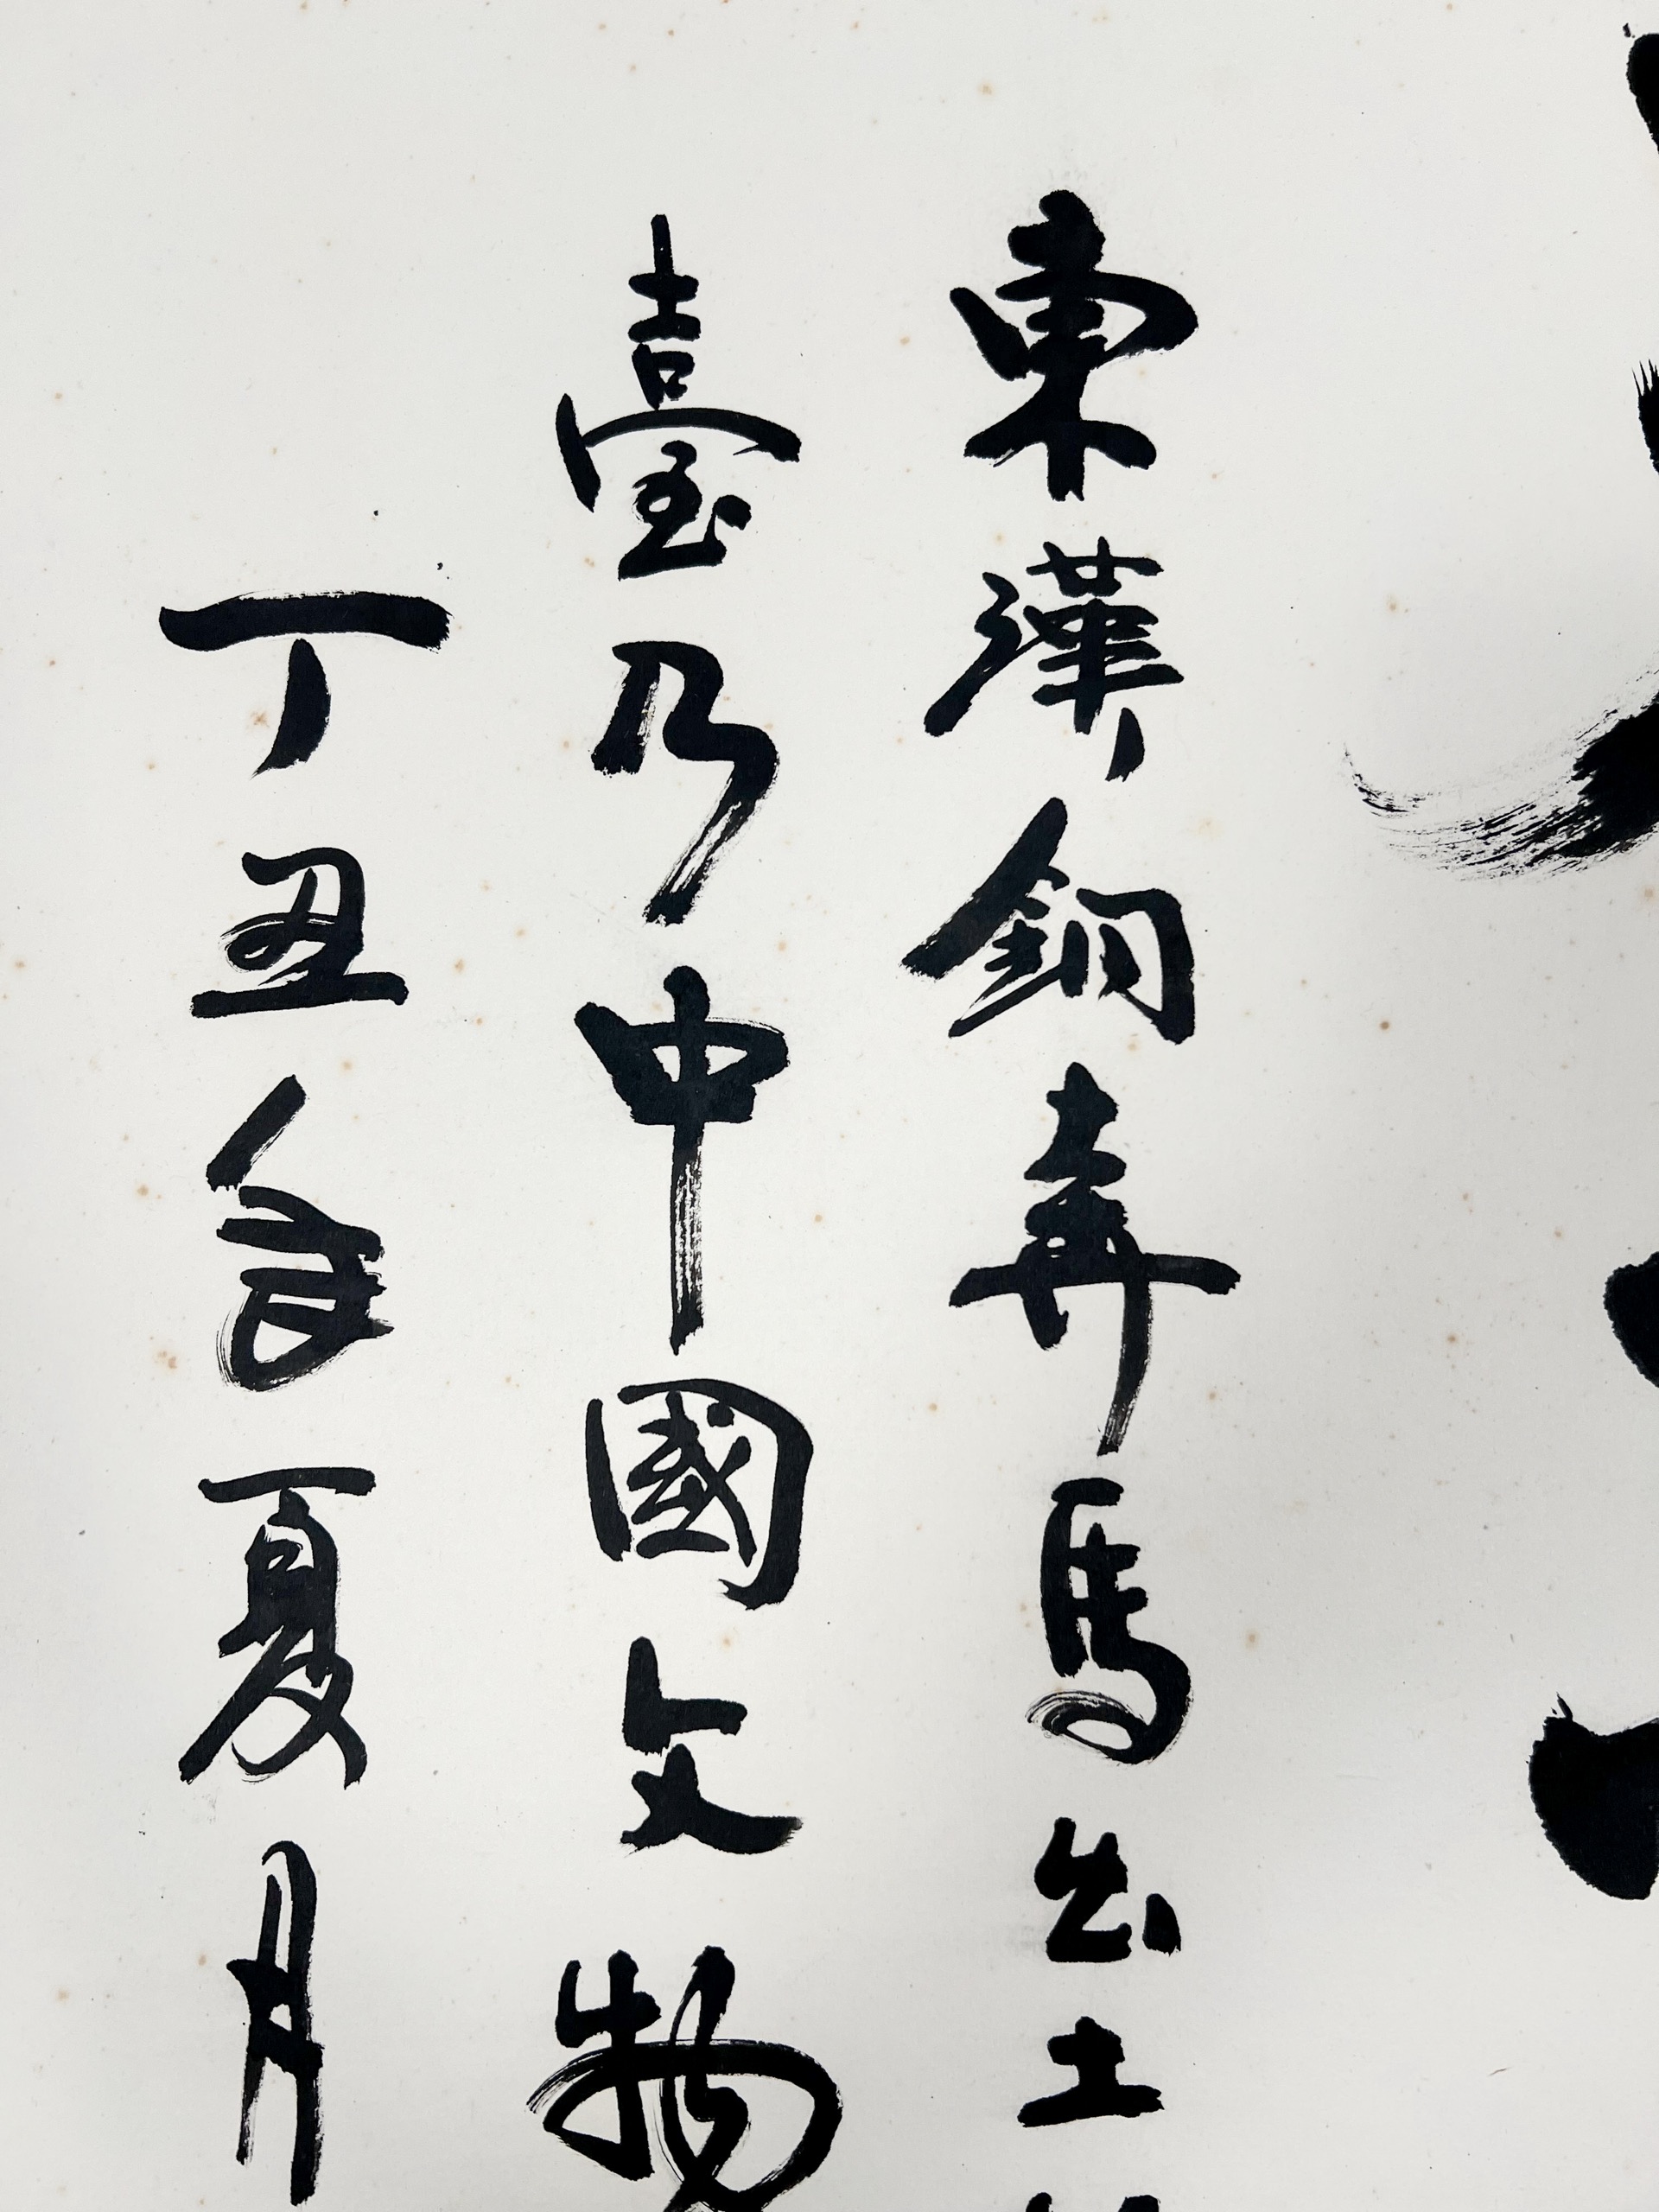 東漢銅奔馬出土
臺乃中國文物
丁丑年夏月